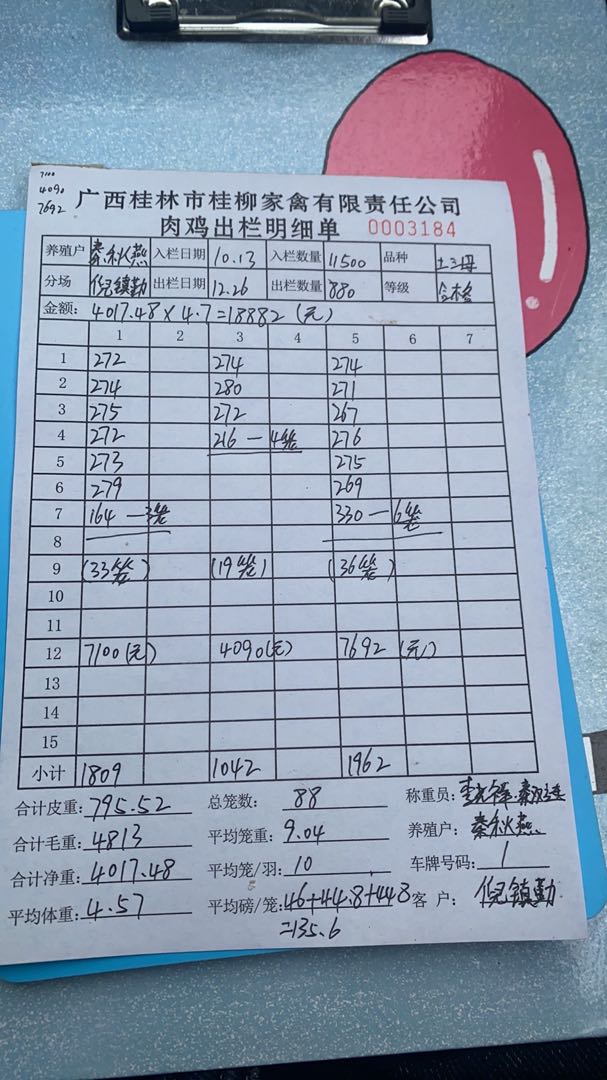 7100
4090
7692
广西桂林市桂柳家禽有限责任公司
肉鸡出栏明细单 0003184
养殖户 秦秋燕 入栏日期 10.13 入栏数量 11500 品种 土三母
分场 倪镇勤 出栏日期 12.26 出栏数量 880 等级 合格
金额: 4017.48×4.7=18882(元)
1 2 3 4 5 6 7
1 272 274 274
2 274 280 271
3 275 272 267
4 272 216 — 4笼 276
5 273 275
6 279 269
7 164 — 3笼 330 — 6笼
8
9 (33笼) (19笼) (36笼)
10
11
12 7100(元) 4090(元) 7692 (元)
13
14
15
小计 1809 1042 1962
合计皮重: 795.52 总笼数: 88 称重员:
合计毛重: 4813 平均笼重: 9.04 养殖户: 秦秋燕
合计净重: 4017.48 平均笼/羽: 10 车牌号码: 1
平均体重: 4.57 平均磅/笼: 46+44.8+44.8 客户: 倪镇勤
=135.6